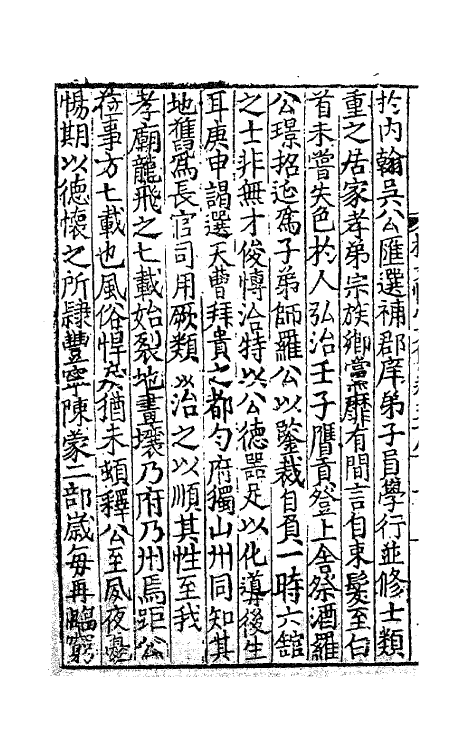 於内翰吳公匯選補郡庠弟子員學行並修士類
重之居家孝弟宗族鄉黨靡有間言自束髮至白
首未嘗失色於人弘治壬子膺貢登上舍祭酒羅
公璟招迤爲子弟師羅公以鑒裁自負一時六舘
之士非無才俊愽洽特以公德器足以化導後生
耳庚申謁選天曹拜貴之都匀府獨山州同知其
地舊爲長官司用厥類以治之以順其性至我
孝廟龍飛之七載始裂地畫壤乃府乃州焉距公
莅事方七載也風俗悍戾猶未頓釋公至夙夜
惕期以德懷之所隸豐寧陳蒙二部嵗每再